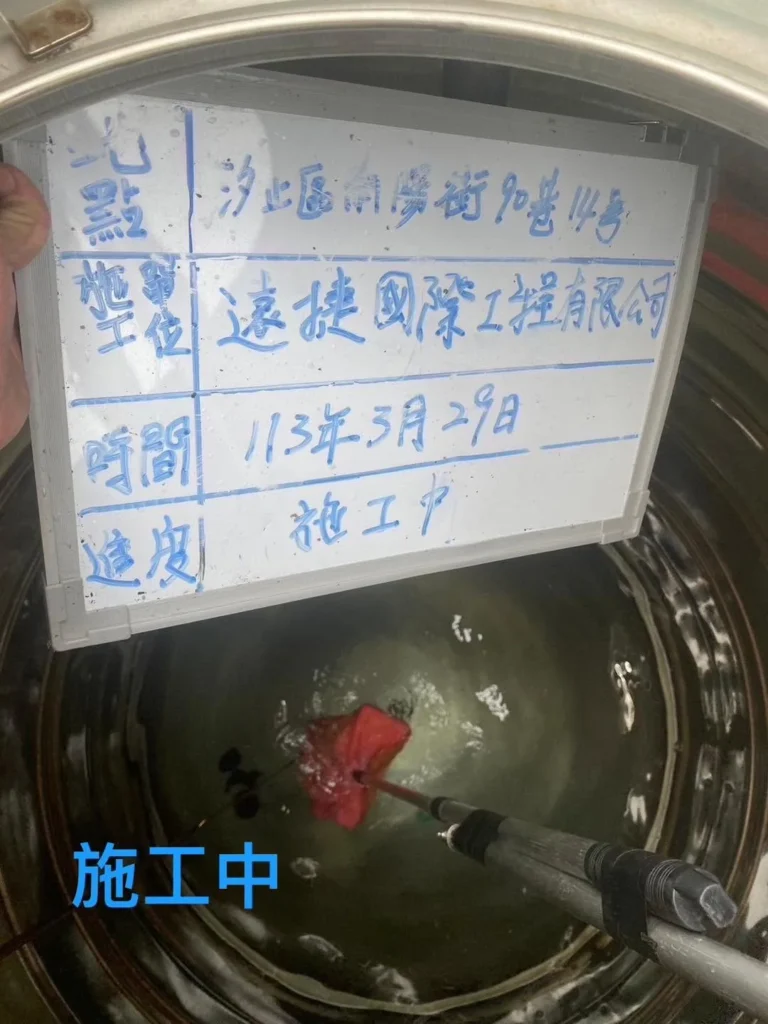 地點 汐止區南陽街90巷14号
施工單位 遠捷國際工程有限公司
時間 113年3月29日
進度 施工中
施工中